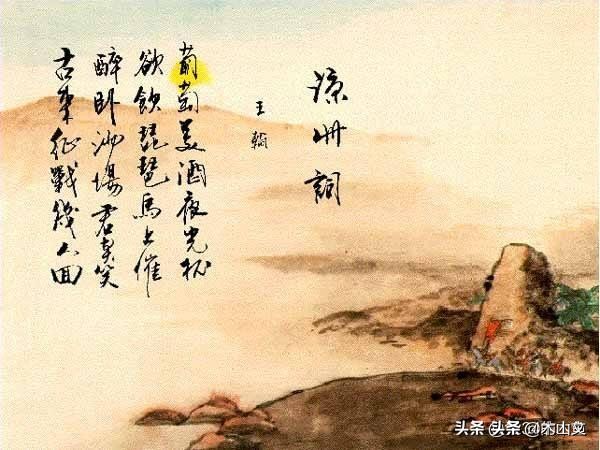 涼州詞
王翰
葡萄美酒夜光杯
欲飲琵琶馬上催
醉臥沙場君莫笑
古來征戰幾人回
头条 头条